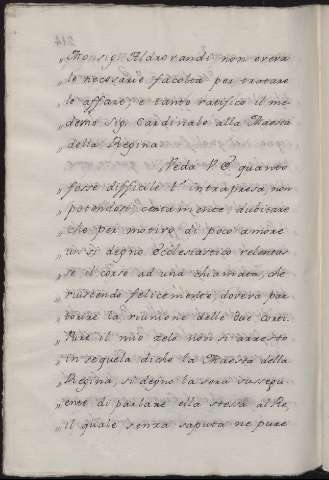 214
„ Monsig.r Aldrovandi non aveva
„ le necesarie facoltà per tratare
„ le affare; e tanto ratifico il me
„ demo Sig. Cardinale alla Maestà
della Regina
„ Veda V. E. quanto
„ fosse dificile l'intrapresa, non
„ potendosi certamente dubitare
„ che per motivo di poco amore
„ un sì degno Ecclesiastico relentas
„ se il corso ad una chiamata, che
„ riuscendo felicemente, doveva par
„ torire la riunione delle due Corti.
„ Pure il mio zelo non si arrestò
„ in sequela di che la Maestà della
„ Regina, si degnò la sera susegu
„ ente di parlare ella stessa al Rè,
„ il quale senza saputa ne pure